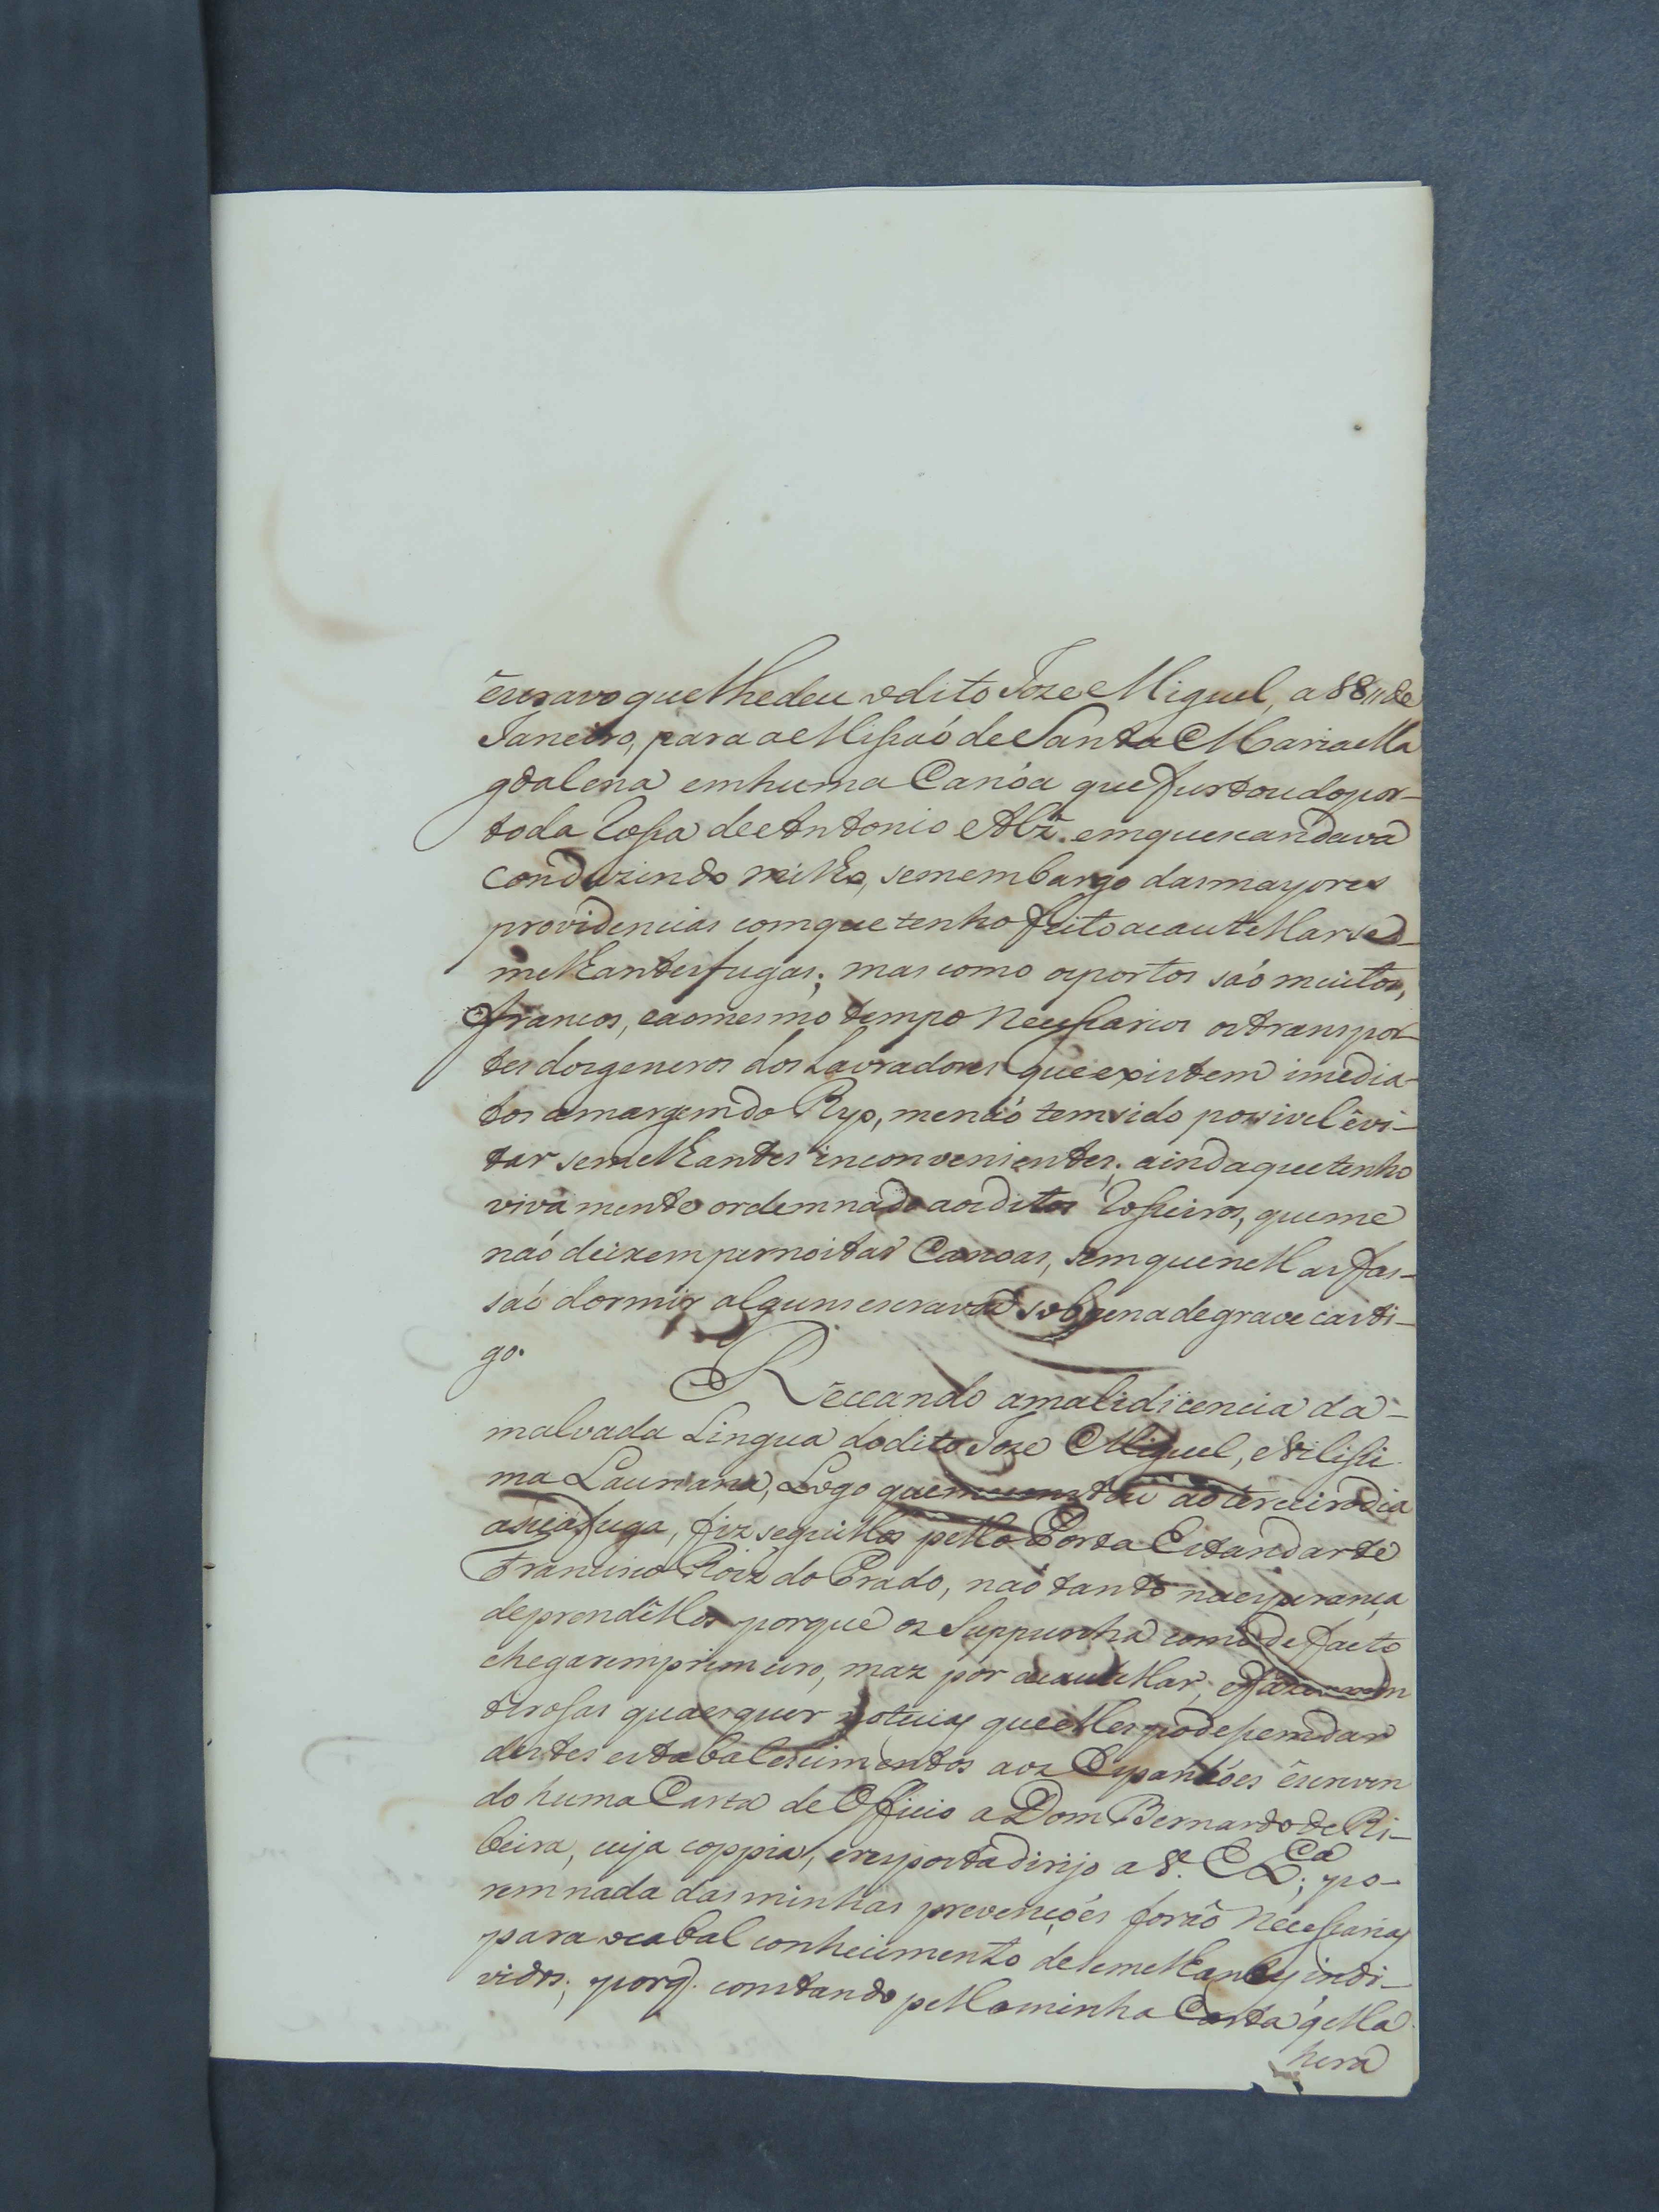 escravo que lhe deu o dito Joze Miguel, a 88 // de
Janeiro, para a Missaó de Santa Maria Ma
gdalena em huma Canóa que furtou do por-
to da Rossa de Antonio Alz̃. em que se andava
conduzindo milho, sem embargo das mayores
providencias com que tenho feito acautellar se-
melhantes fugas; mas como os portos saó muitos,
francos, e ao mesmo tempo necessarios os transpor-
tes dos generos dos Lavradores que existem imedia-
tos a margem do Ryo, me naó tem sido possivel evi-
tar semelhantes inconvenientes; ainda que tenho
vivamente ordemnado aos ditos Rossieiros, que me
naó deixem pernoitar Canoas, sem que nellas fas-
saó dormir alguns escravos sob pena de grave casti-
go.
Receando a malidicencia da
malvada Lingua do dito Joze Miguel, e vilissi
ma Lauriana, Logo que me constou ao terceiro dia
a sua fuga, fiz seguillos pello Porta Estandarte
Francisco Roiz do Prado, naó tanto na esperança
de prendellos porque os Suppunha como de facto
chegarem primeiro, maz por acautellar, e fazer men
tirosas quaesquer noticias que elles podessem dar
destes estabalescimentos aos Espanhóes escreven
do huma Carta de Officio a Dom Bernardo de Ri-
beira, cuja coppia, e resposta dirijo a V. Ex.ca; po-
rem nada das minhas prevençóes foraõ necessarias
para o cabal conhecimento de semelhantes indi-
vidos; porq̃. constando pella minha Carta q̃ ella
hera